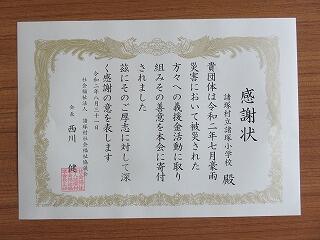 感謝状
諸塚村立諸塚小学校 殿
貴団体は令和二年七月豪雨
災害において被災された
方々への義援金活動に取り
組みその善意を本会に寄付
されました
茲にそのご厚志に対して深
く感謝の意を表します
令和二年八月三十一日
社会福祉法人 諸塚村社会福祉協議会
会長 西川 健